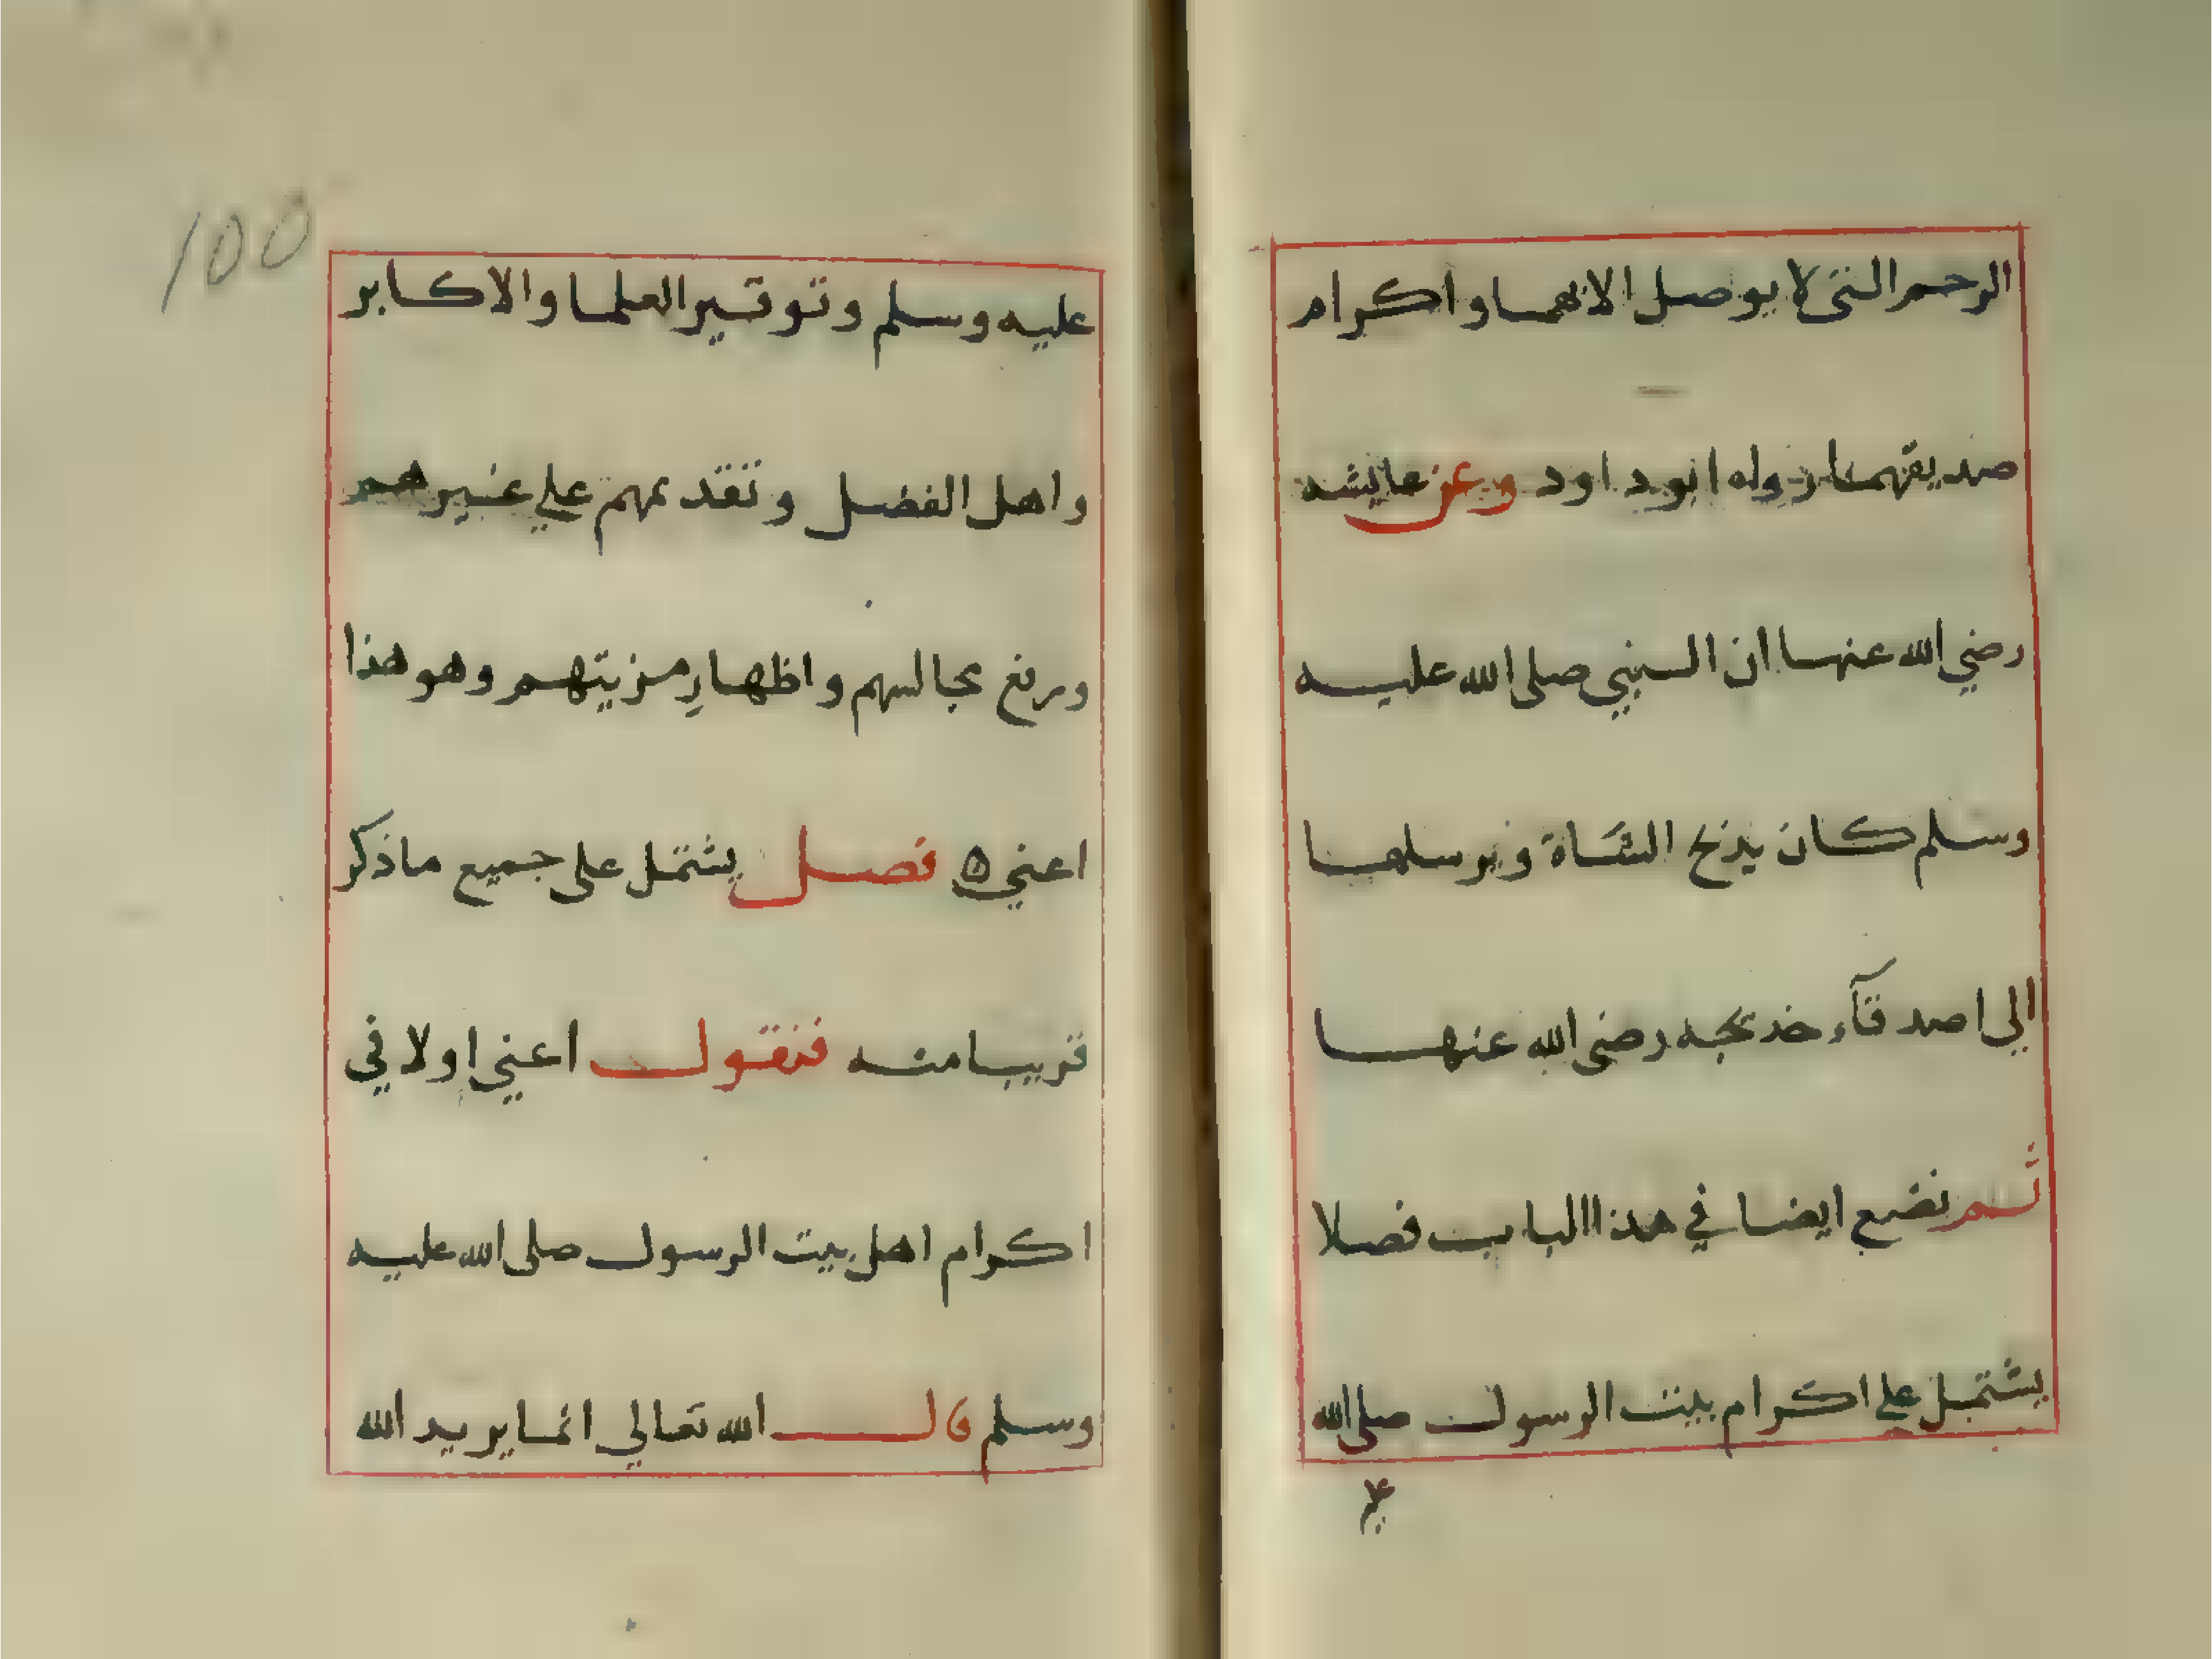 الرحم التي لا يوصل الا بهما واكرام
صديقهما رواه ابو داود وعن عايشه
رضي الله عنها ان النبي صلى الله عليه
وسلم كان يذبح الشاة ويرسلها
الي اصدقآء خديجه رضى الله عنها
ثم نضع ايضا في هذا الباب فصلا
يشتمل علي اكرام بيت الرسول صلى الله
100
عليه وسلم وتوقير العلما والاكابر
واهل الفضل وتقديمهم علي غيرهم
ورفع مجالسهم واظهار مزيتهم وهو هذا
اعني ه فصل يشتمل على جميع ما ذكر
قريبا منه فنقول اعني اولا في
اكرام اهل بيت الرسول صلى الله عليه
وسلم قال الله تعالي انما يريد الله